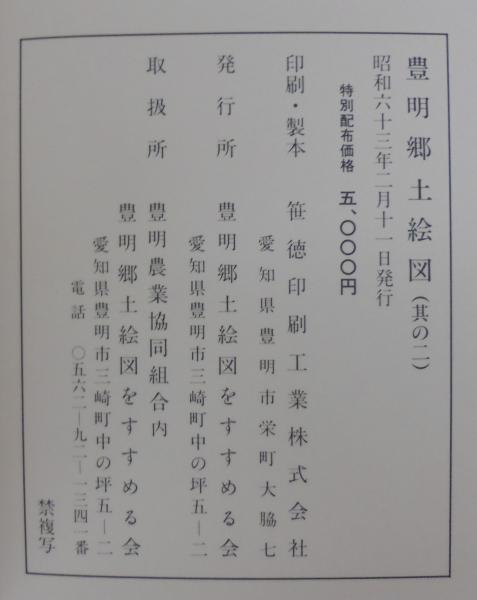 豊明郷土絵図（其の二）
昭和六十三年二月十一日発行
特別配布価格　五、〇〇〇円
印刷・製本　笹徳印刷工業株式会社
愛知県豊明市栄町大脇七
発行所　豊明郷土絵図をすすめる会
愛知県豊明市三崎町中の坪五―二
取扱所　豊明農業協同組合内
豊明郷土絵図をすすめる会
愛知県豊明市三崎町中の坪五―二
電話　〇五六二―九二―一三四一番
禁複写